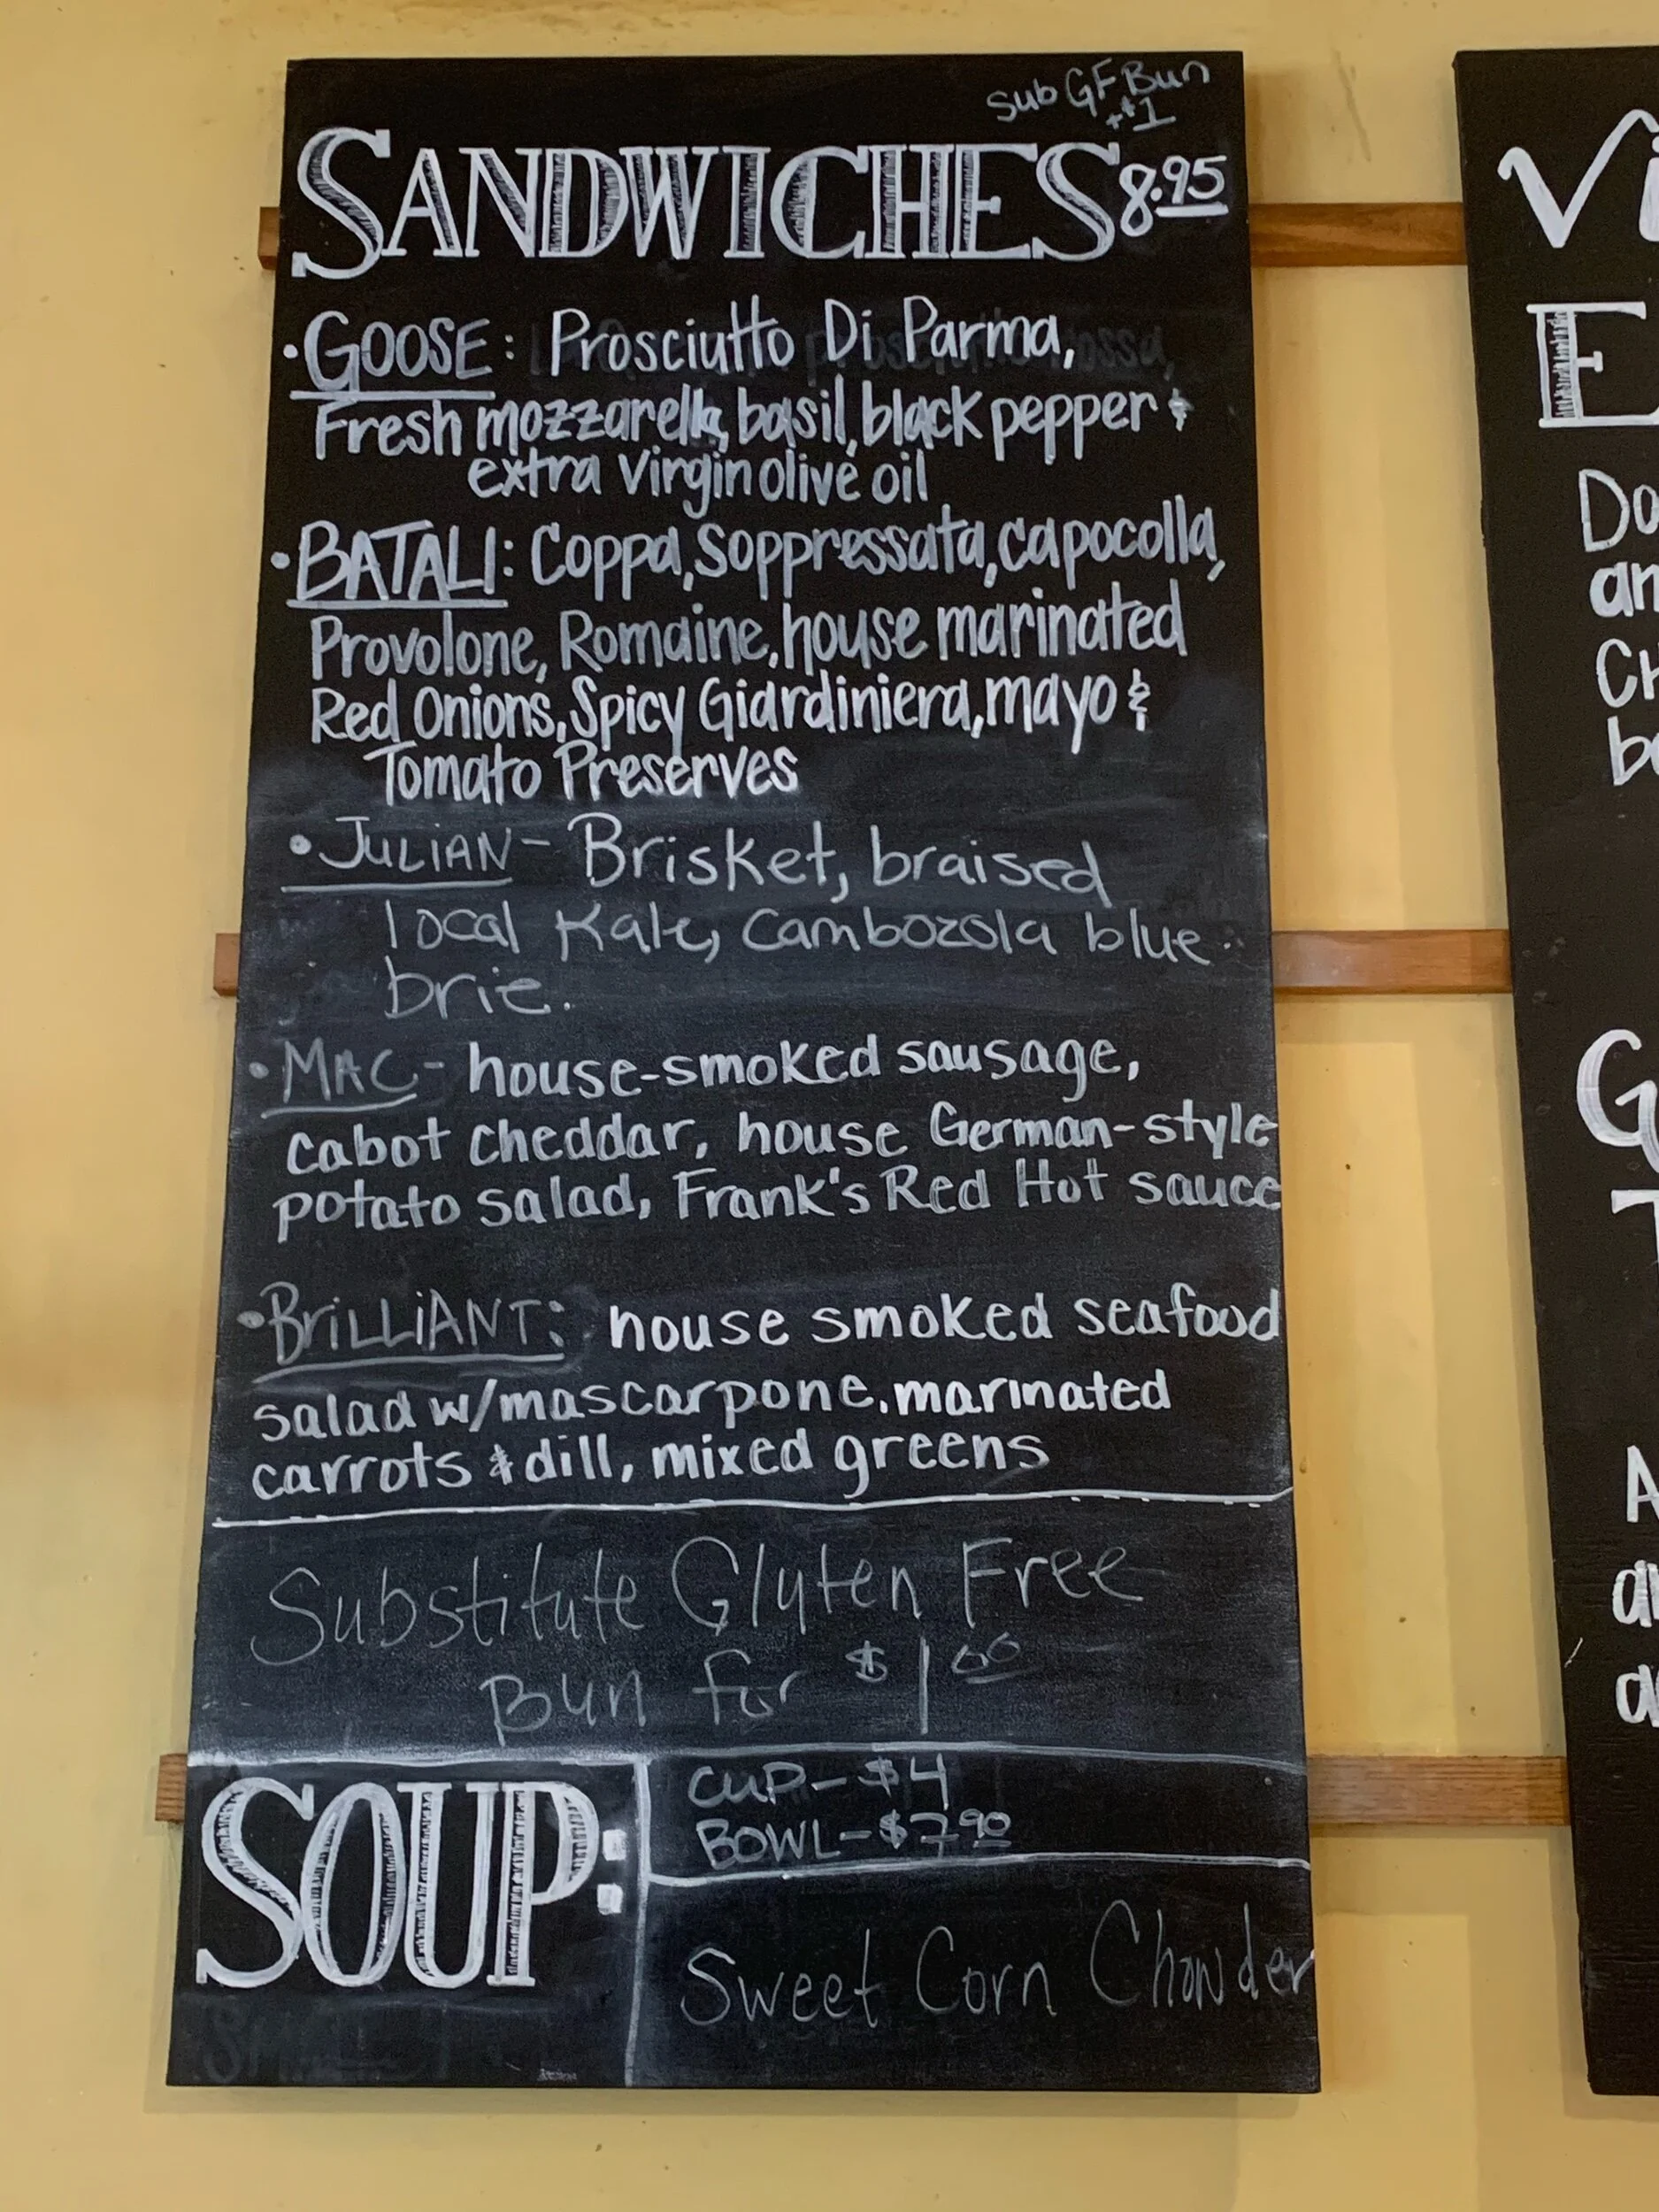 Sub GF Bun
+$1
SANDWICHES 8.95
• GOOSE: Prosciutto Di Parma,
Fresh mozzarella, basil, black pepper &
extra virgin olive oil
• BATALI: Coppa, Soppressata, capocolla,
Provolone, Romaine, house marinated
Red Onions, Spicy Giardiniera, mayo &
Tomato Preserves
• JULIAN - Brisket, braised
local Kale, Cambozola blue
brie.
• MAC - house-smoked sausage,
cabot cheddar, house German-style
potato salad, Frank's Red Hot sauce
• BRILLIANT: house smoked seafood
salad w/mascarpone, marinated
carrots & dill, mixed greens
Substitute Gluten Free
Bun for $1.00
SOUP:
CUP - $4
BOWL - $7.90
Sweet Corn Chowder
Vi
E
Do
an
Ch
G
T
A